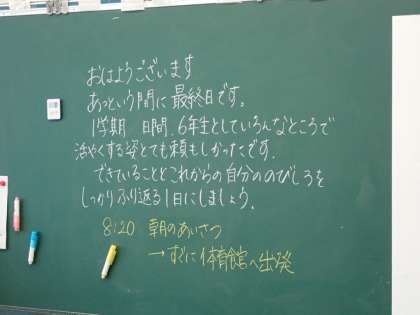 おはようございます
あっという間に最終日です。
1学期　日間、6年生としていろんなところで
活やくする姿とても頼もしかったです。
できていることとこれからの自分ののびしろを
しっかりふり返る1日にしましょう。
8:20 朝のあいさつ
→すぐに体育館へ出発